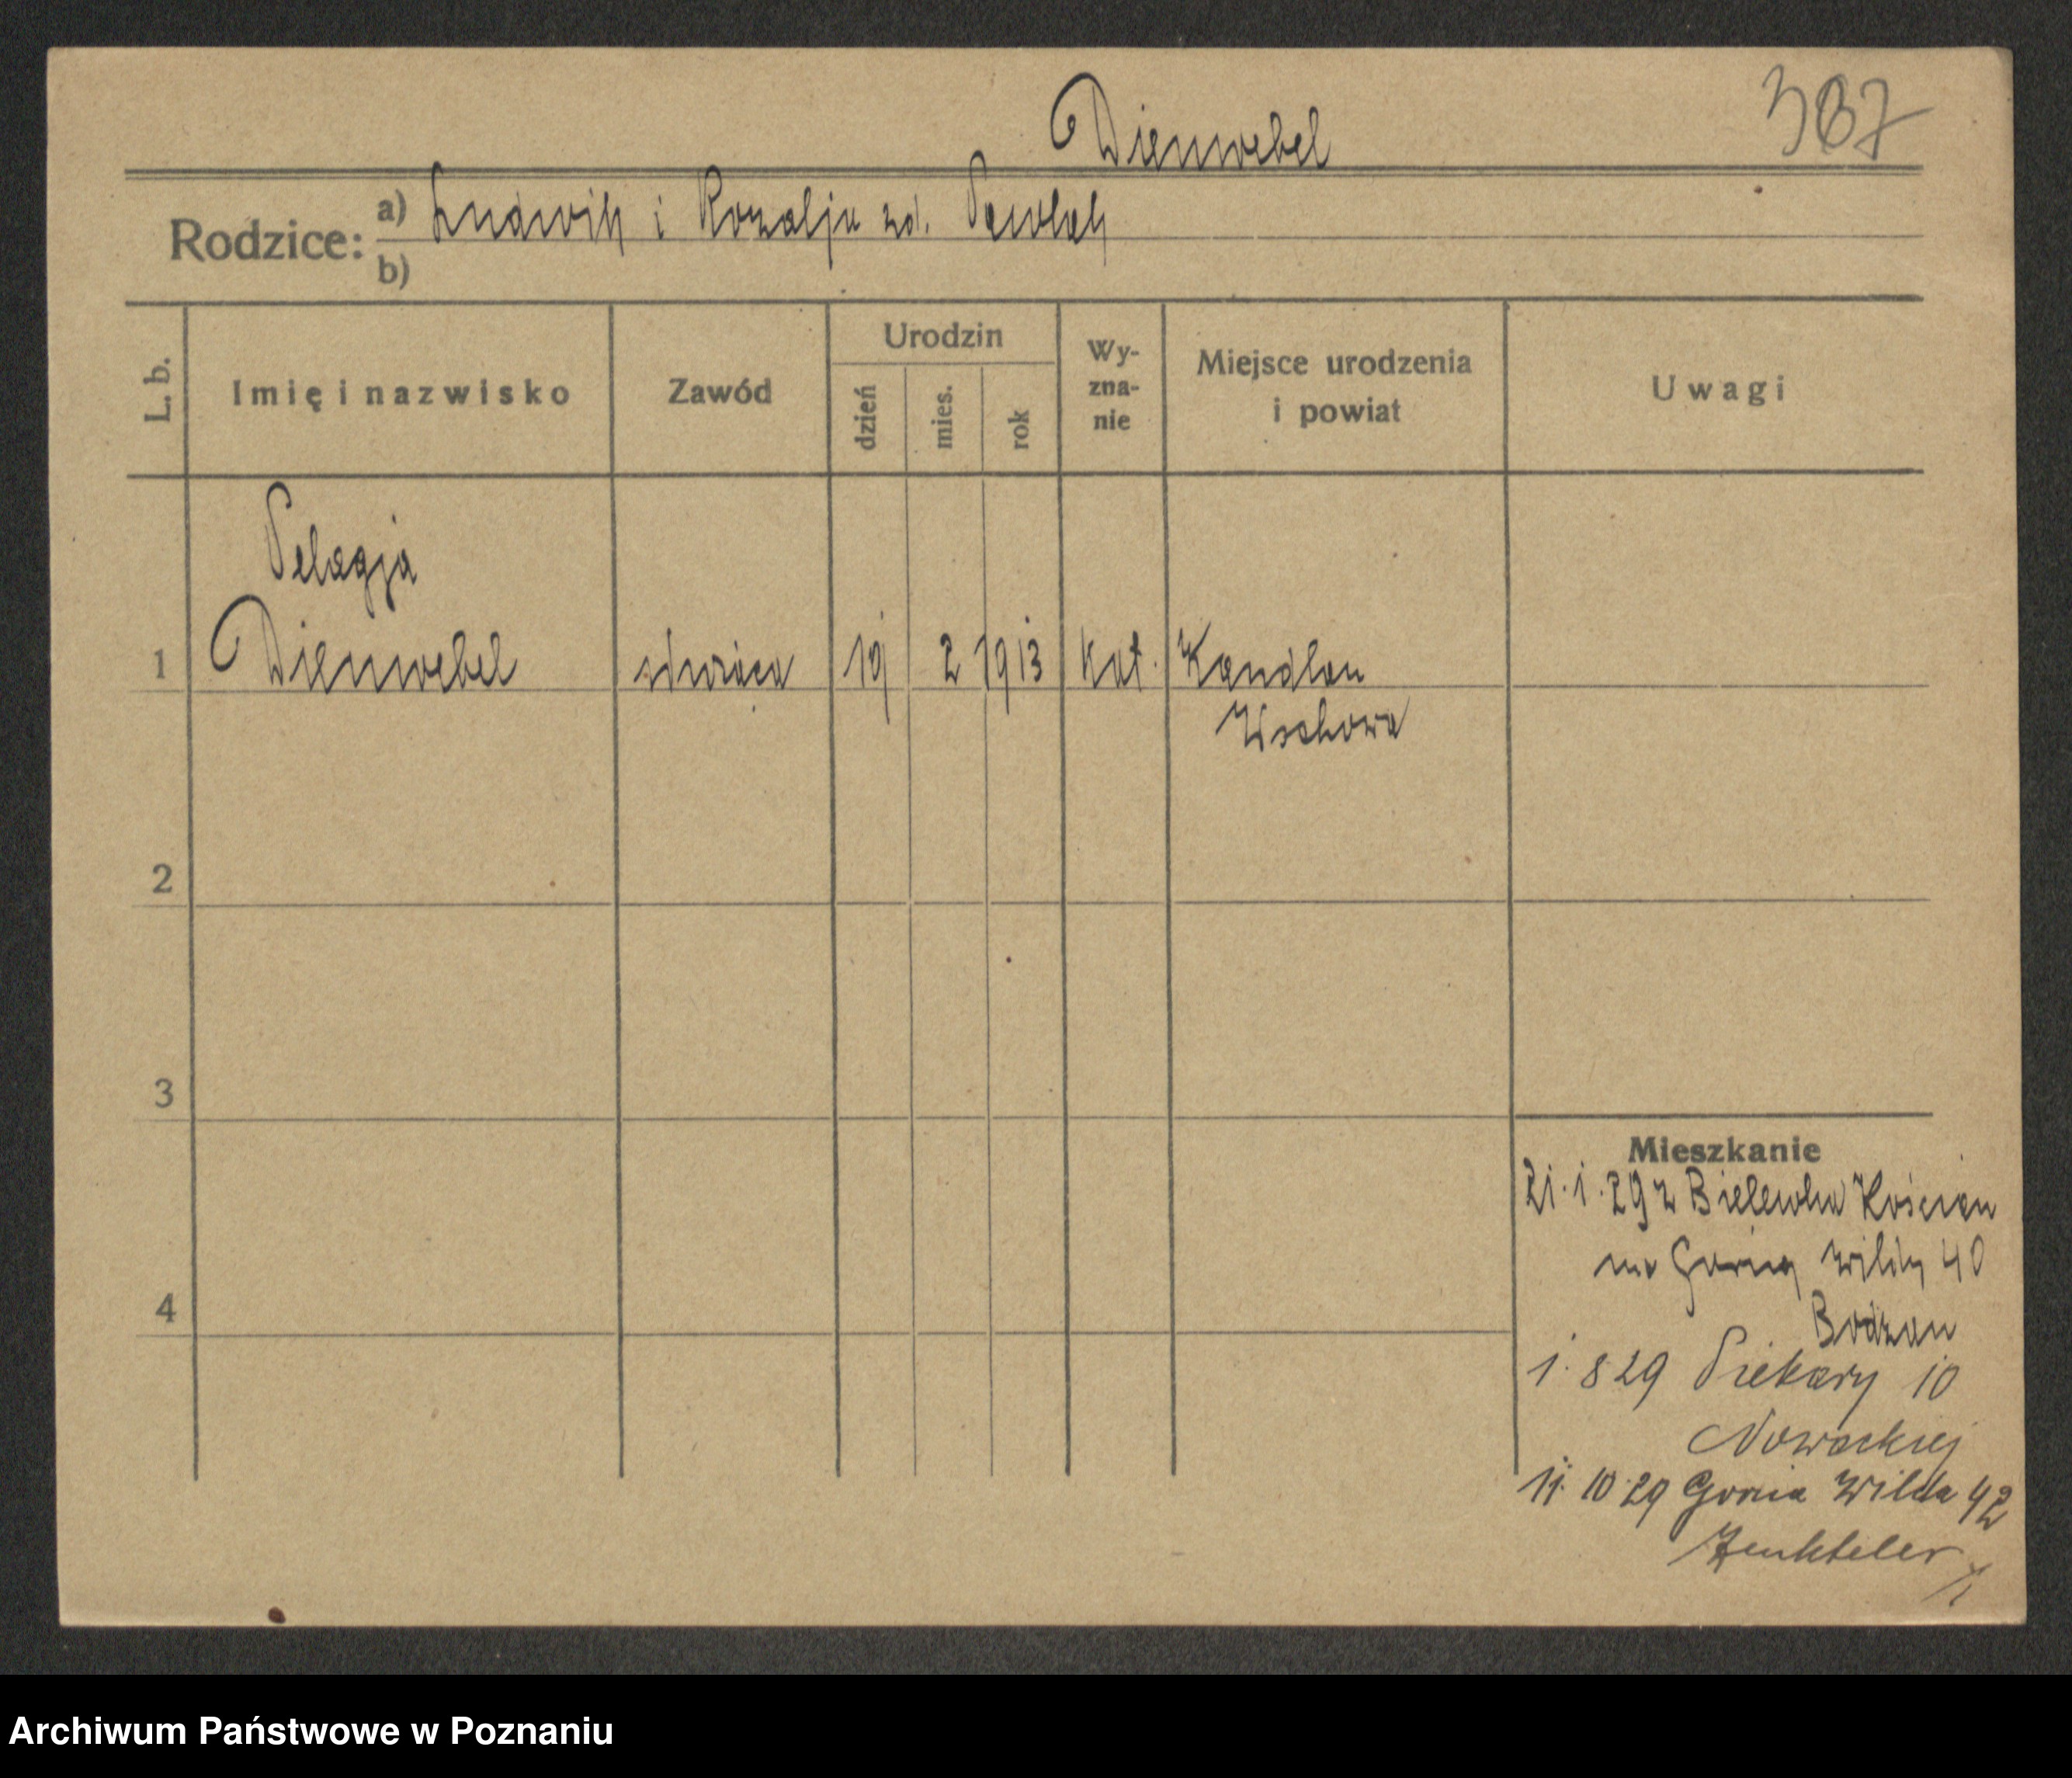 Dienwebel
387
Rodzice: a) Ludwik i Rozalja zd. Pawlak
b)
L. b.
Imię i nazwisko
Zawód
Urodzin
dzień
mies.
rok
Wy-
zna-
nie
Miejsce urodzenia
i powiat
Uwagi
Pelagja
1 Dienwebel służąca 19 2 1913 kat. Kandlau
Wschowa
2
3
4
Mieszkanie
21.1.29 z Bielewka Kościan
na Górną Wildę 40
Bodzan
1.8 29 Piekary 10
Nowackiej
11.10.29 Gorna Wilda 42
Zenkteler
Archiwum Państwowe w Poznaniu